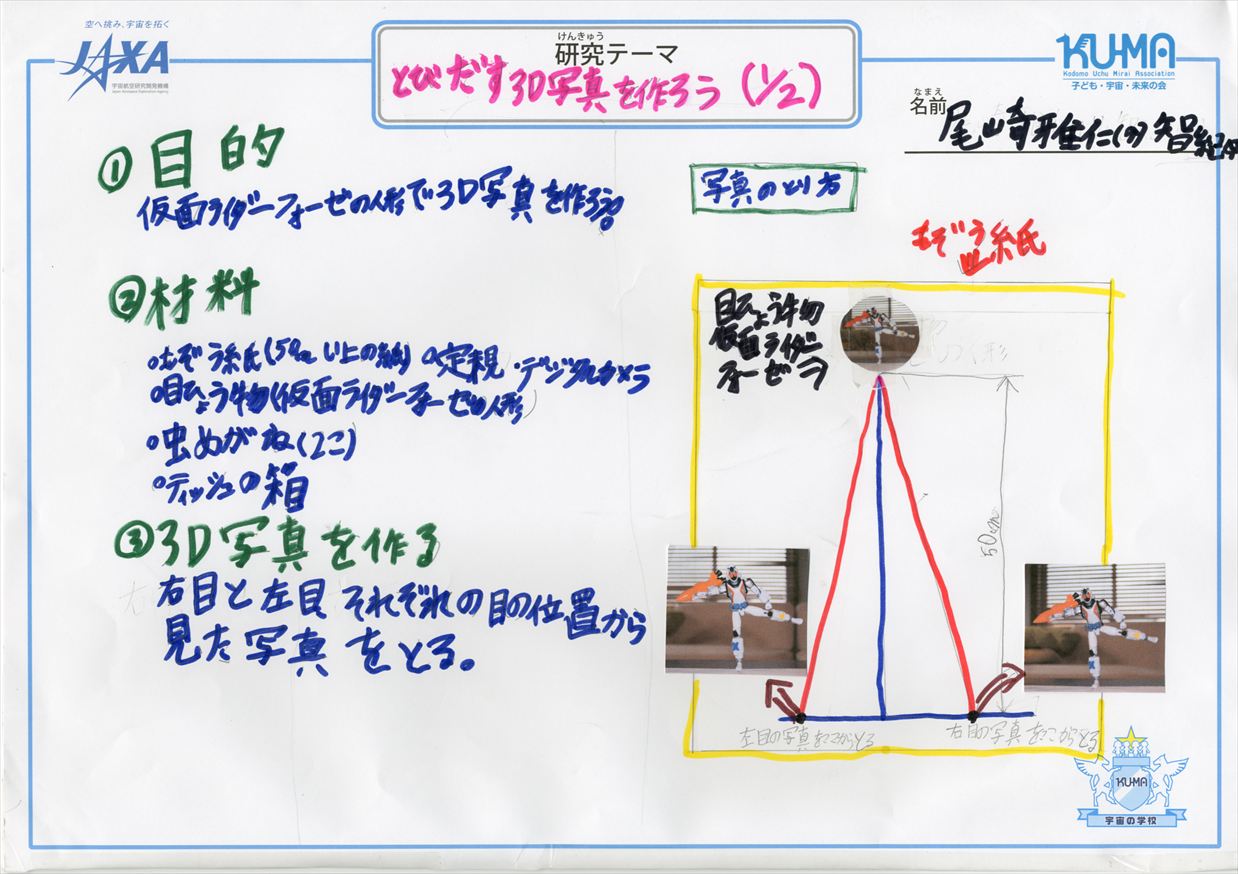 空へ挑み、宇宙を拓く
JAXA
宇宙航空研究開発機構
Japan Aerospace Exploration Agency
けんきゅう
研究テーマ
とびだす3D写真を作ろう(1/2)
KU-MA
Kodomo Uchu Mirai Association
子ども・宇宙・未来の会
なまえ
名前
尾山奇雅仁(

①目的
仮面ライダーフォーゼの人形で3D写真を作ろう。
②材料
もぞう紙(50cm以上の紙) 定規・デジタルカメラ
目ひょう物(仮面ライダーフォーゼの人形)
虫めがね(2こ)
ティッシュの箱
③3D写真を作る
右目と左目それぞれの目の位置から
見た写真をとる。
写真のとり方
もぞう紙
目ひょう物
仮面ライダー
フォーゼ
50cm
左目の写真をここからとる
右目の写真をここからとる
KU-MA
宇宙の学校